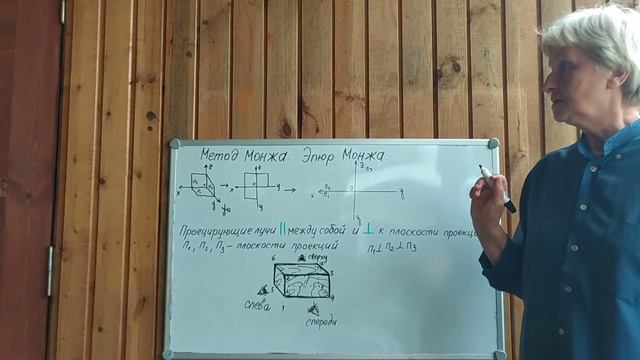 Метод Монжа. Эпюр Монжа.
Проецирующие лучи || между собой и ⊥ к плоскости проекц
П₁, П₂, П₃ – плоскости проекций П₁⊥П₂⊥П₃
сверху
слева
спереди